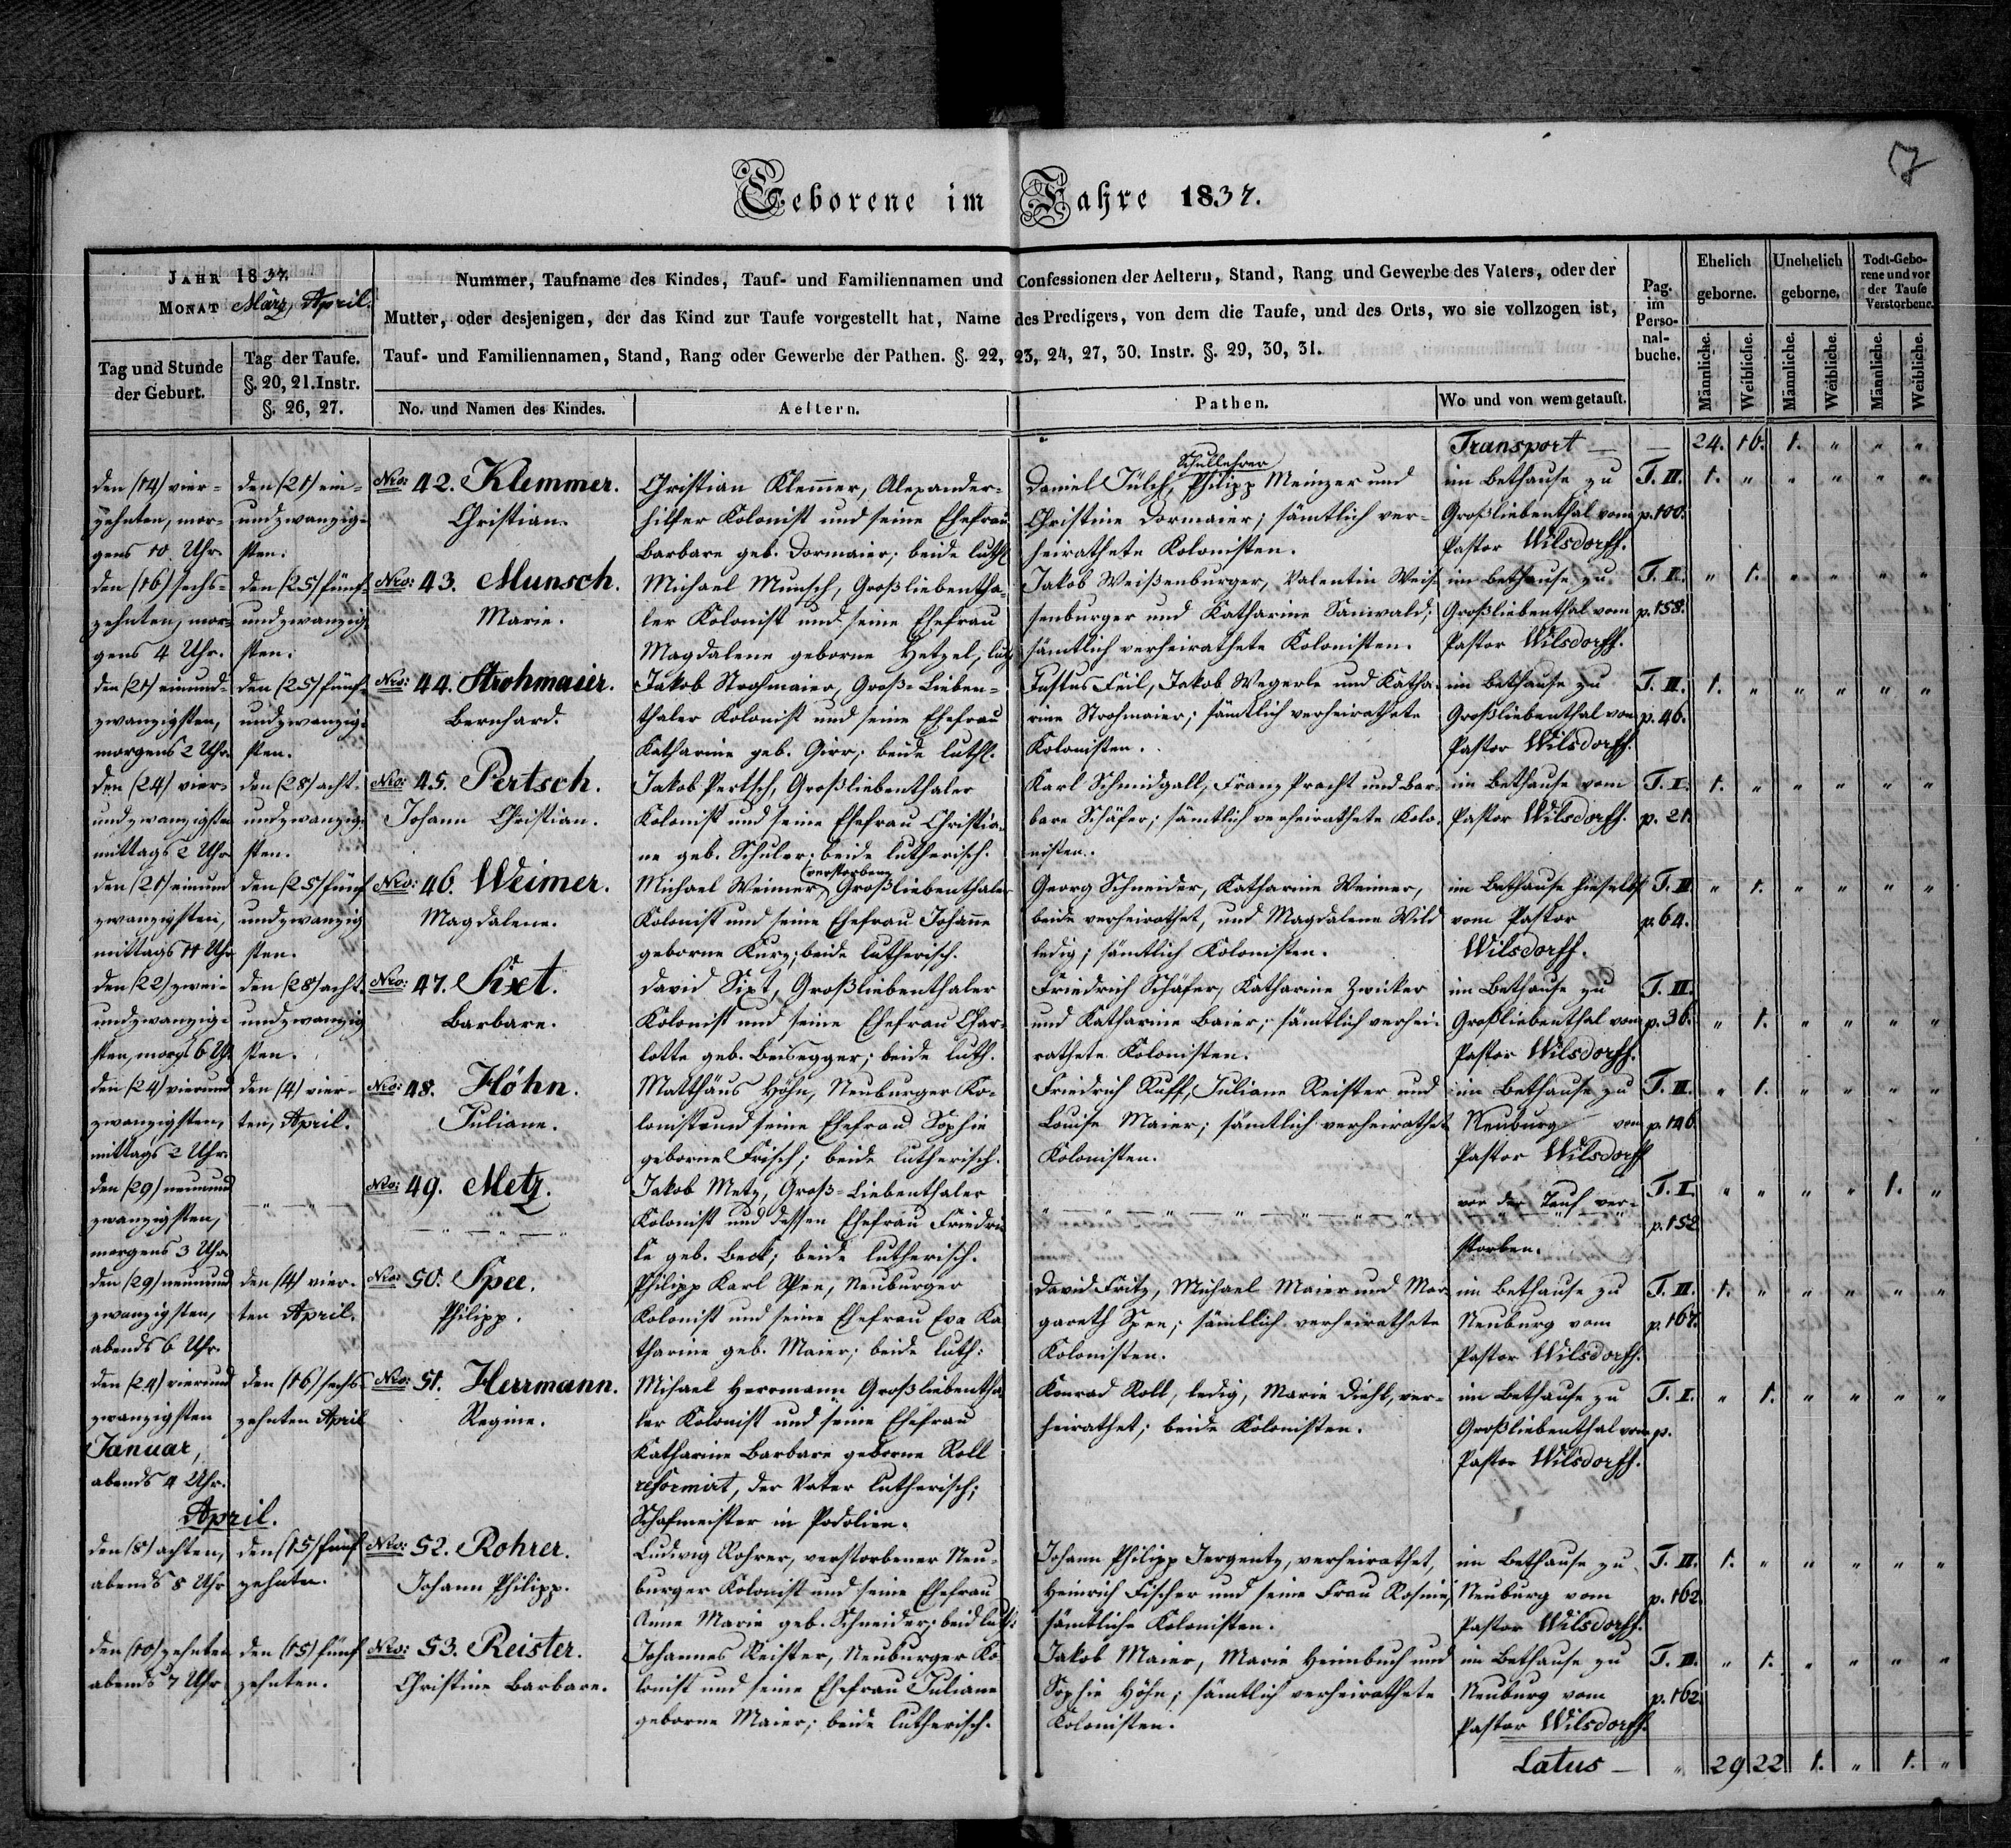 7
Geborene im Jahre 1837.
JAHR 1837.
MONAT März, April.
Nummer, Taufname des Kindes, Tauf- und Familiennamen und Confessionen der Aeltern, Stand, Rang und Gewerbe des Vaters, oder der
Mutter, oder desjenigen, der das Kind zur Taufe vorgestellt hat, Name des Predigers, von dem die Taufe, und des Orts, wo sie vollzogen ist,
Tauf- und Familiennamen, Stand, Rang oder Gewerbe der Pathen. §. 22, 23, 24, 27, 30. Instr. §. 29, 30, 31.
Tag und Stunde
der Geburt.
Tag der Taufe.
§. 20, 21. Instr.
§. 26, 27.
No. und Namen des Kindes.
Aeltern.
Pathen.
Wo und von wem getauft.
Pag.
im
Perso-
nal-
buche.
Ehelich
geborne.
Unehelich
geborne,
Todt-Gebo-
rene und vor
der Taufe
Verstorbene.
Männliche.
Weibliche.
Männliche.
Weibliche.
Männliche.
Weibliche.
Transport — — 24. 16. 1. " " "
den (14) vier-
zehnten, mor-
gens 10 Uhr.
den (21) ein-
undzwanzig-
sten.
Nro: 42. Klemmer.
Christian.
Christian Klemer, Alexander-
hilfer Kolonist und seine Ehefrau
Barbara geb. Dormaier; beide luth
Schullehrer
Daniel Jülch, Philipp Meinzer und
Christine Dormaier; sämtlich ver-
heirathete Kolonisten.
im Bethause zu
Großliebenthal vom
Pastor Wilsdorff.
T. II.
p. 100.
1. " " " " "
den (16) sechs-
zehnten, mor-
gens 4 Uhr.
den (25) fünf-
undzwanzig-
sten.
Nro: 43. Munsch.
Marie.
Michael Munsch, Großliebentha-
ler Kolonist und seine Ehefrau
Magdalene geborne Hetzel, luth
Jakob Weißenburger, Valentin Weis-
senburger und Katharine Sanwald;
sämtlich verheirathete Kolonisten.
im Bethause zu
Großliebenthal vom
Pastor Wilsdorff.
T. II.
p. 158.
" 1. " " " "
den (21) einund-
zwanzigsten,
morgens 2 Uhr.
den (25) fünf-
undzwanzig-
sten.
Nro: 44. Strohmaier.
Bernhard.
Jakob Strohmaier, Groß-Lieben-
thaler Kolonist und seine Ehefrau
Katharine geb. Girr; beide luth.
Justus Feil, Jakob Wegerle und Katha-
rine Strohmaier; sämtlich verheirathete
Kolonisten.
im Bethause zu
Großliebenthal von
Pastor Wilsdorff.
T. II.
p. 46.
1. " " " " "
den (24) vier-
undzwanzigsten
mittags 2 Uhr
den (28) acht-
undzwanzig-
sten.
Nro: 45. Pertsch.
Johann Christian.
Jakob Pertsch, Großliebenthaler
Kolonist und seine Ehefrau Christia-
ne geb. Schuler; beide lutherisch.
Karl Schmidgall, Franz Pracht und Bar-
bare Schäfer; sämtlich verheirathete Kolo-
nisten.
im Bethause vom
Pastor Wilsdorff.
T. I.
p. 21.
1. " " " " "
den (21) einund
zwanzigsten,
mittags 11 Uhr
den (25) fünf
undzwanzig
sten.
Nro: 46. Weimer.
Magdalene.
verstorben
Michael Weimer, Großliebenthaler
Kolonist und seine Ehefrau Johanne
geborne Kurz; beide lutherisch.
Georg Schneider, Katharine Weimer,
beide verheirathet, und Magdalene Wild
ledig; sämtlich Kolonisten.
im Bethause hieselbst
vom Pastor
Wilsdorff.
T. II
p. 64.
" 1. " " " "
den (22) zwei-
undzwanzig-
sten, morgs 6 Uh
den (28) acht
undzwanzig
sten.
Nro: 47. Sixt.
Barbare.
David Sixt, Großliebenthaler
Kolonist und seine Ehefrau Char-
lotte geb. Beisegger; beide luth.
Friedrich Schäfer, Katharine Zwicker
und Katharine Baier; sämtlich verhei-
rathete Kolonisten.
im Bethause zu
Großliebenthal vom
Pastor Wilsdorff.
T. II.
p. 36.
" 1. " " " "
den (24) vierund
zwanzigsten,
mittags 2 Uhr.
den (4) vier-
ten, April.
Nro: 48. Höhn.
Juliane.
Matthäus Höhn, Neuburger Ko-
lonist und seine Ehefrau Sophie
geborne Frisch; beide lutherisch.
Friedrich Ruff, Juliane Reister und
Louise Maier; sämtlich verheirathet
Kolonisten.
im Bethause zu
Neuburg vom
Pastor Wilsdorff
T. II.
p. 146
" 1. " " " "
den (29) neunund
zwanzigsten,
morgens 3 Uhr.
— " — " —
Nro: 49. Metz.
— " — " — "
Jakob Metz, Groß-Liebenthaler
Kolonist und dessen Ehefrau Friedri-
ke geb. Beck; beide lutherisch.
" — " — " — " — " — " — "
vor der Tauf ver-
storben.
T. I.
p. 152
" " " " 1. "
den (29) neunund
zwanzigsten,
abends 6 Uhr.
den (4) vier-
ten April.
Nro: 50. Spee.
Philipp.
Philipp Karl Spee, Neuburger
Kolonist und seine Ehefrau Eva Ka
tharine geb. Maier; beide luth:
David Fritz, Michael Maier und Mar-
gareth Spee; sämtlich verheirathete
Kolonisten.
im Bethause zu
Neuburg vom
Pastor Wilsdorff.
T. II.
p. 167.
1. " " " " "
den (24) vierund
zwanzigsten
Januar,
abends 4 Uhr.
den (16) sechs-
zehnten April
Nro: 51. Herrmann.
Regine.
Mihael Herrmann Großliebentha
ler Kolonist und seine Ehefrau
Katharine Barbare geborne Roll
reformirt, der Vater lutherisch;
Schafmeister in Podolien.
Konrad Roll, ledig, Marie Diehl, ver-
heirathet; beide Kolonisten.
im Bethause zu
Großliebenthal vom
Pastor Wilsdorff.
T. I.
p.
" 1. " " " "
April.
den (8) achten,
abends 8 Uhr
den (15) fünf
zehnten.
Nro: 52. Rohrer.
Johann Philipp.
Ludwig Rohrer, verstorbener Neu-
burger Kolonist und seine Ehefrau
Anne Marie geb. Schneider; beid luth:
Johann Philipp Jergentz, verheirathet,
Heinrich Fischer und seine Frau Rosine,
sämtliche Kolonisten.
im Bethause zu
Neuburg vom
Pastor Wilsdorff.
T. II.
p. 162.
1. " " " " "
den (10) zehnten
abends 7 Uhr
den (15) fünf
zehnten.
Nro: 53. Reister.
Christine Barbare.
Johannes Reister, Neuburger Ko-
lonist und seine Ehefrau Juliane
geborne Maier; beide lutherisch.
Jakob Maier, Marie Heimbuch und
Sophie Höhn; sämtlich verheirathete
Kolonisten.
im Bethause zu
Neuburg vom
Pastor Wilsdorff.
T. II.
p. 162.
" 1. " " " "
Latus — " 29 22 1. " 1. "